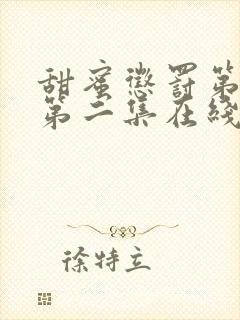 甜蜜惩罚第
第二集在线
徐特立